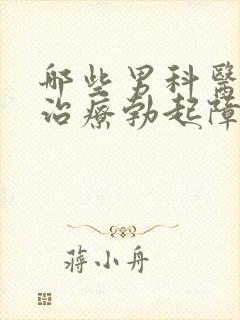 那些男科醫
治療勃起障
蔣小舟